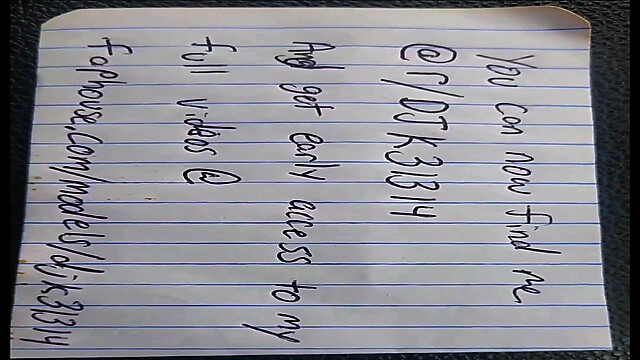 You can now find me
@ r/DJK31314
And get early access to my
full videos @
Faphouse.com/models/djk31314